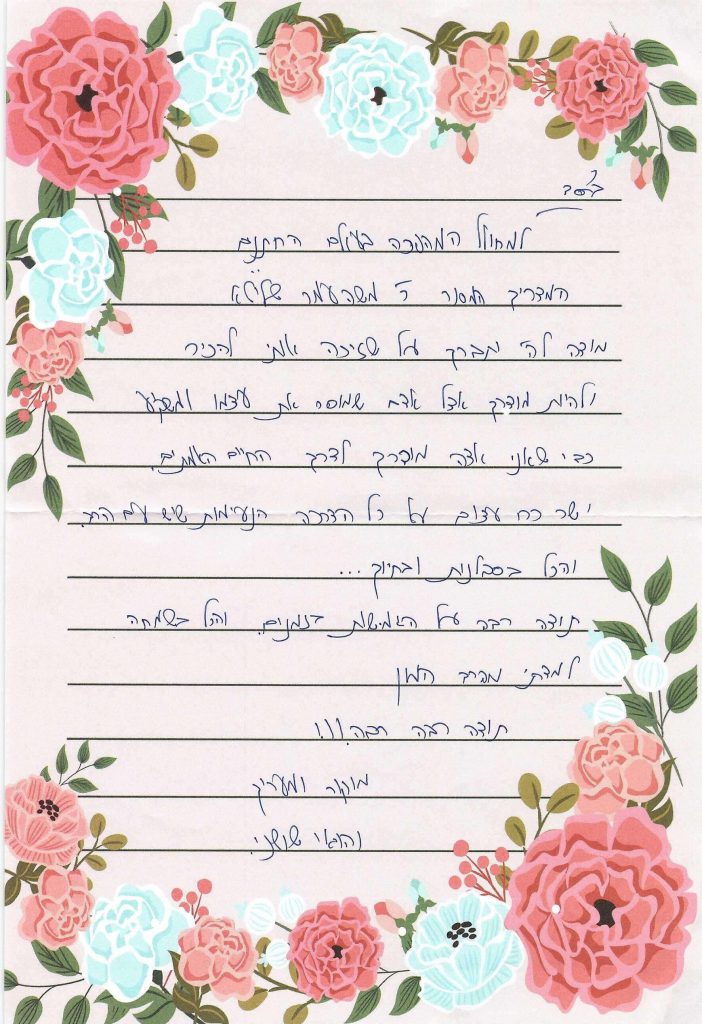 בס"ד
למחולל המהפכה בעולם החתנים
המדריך המסור ר' משה עמר שליט"א
מודה לה' יתברך על שזיכה אותי להכיר
ולהיות מודרך אצל אדם שמוסר את עצמו ומשקיע
כדי שאני אצא מודרך לדרך החיים האמתיים.
ישר כח עצום על כל הדרכה הנעימות שיש עם הרב.
והכל בסבלנות ובחיוך...
תודה רבה על הגמישות בזמנים. והכל בשמחה
למדתי מהרב המון
תודה רבה רבה!!!
מוקיר ומעריך
שושני.